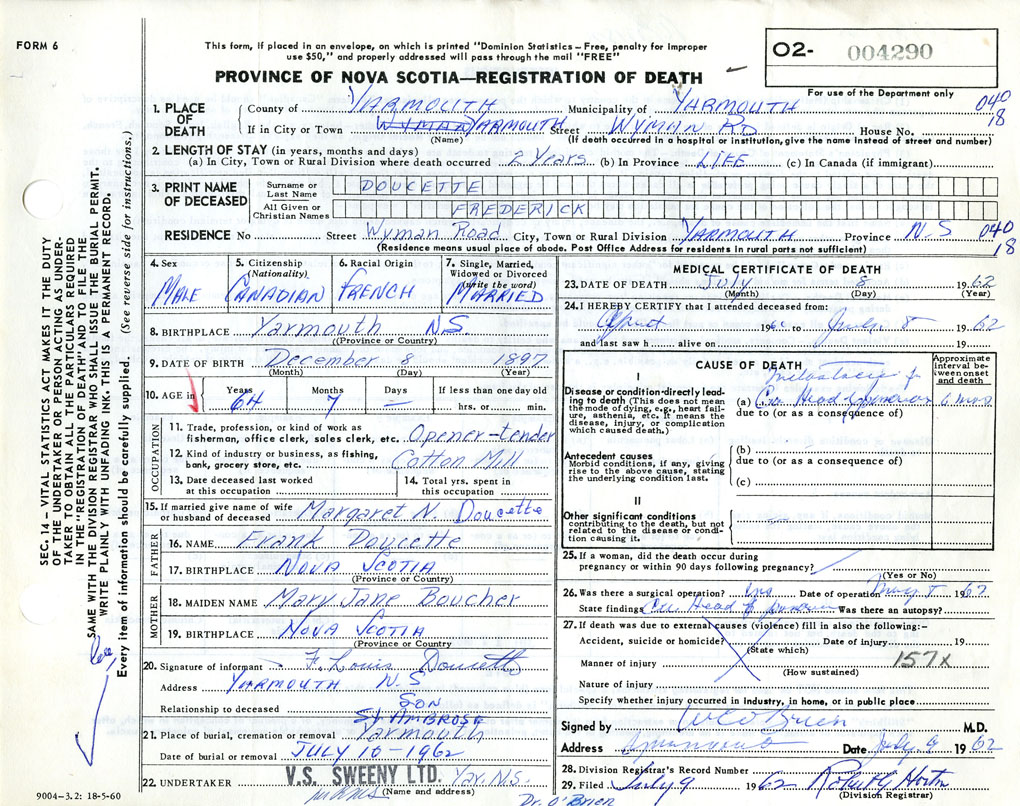 FORM 6
This form, if placed in an envelope, on which is printed "Dominion Statistics – Free, penalty for improper
use $50," and properly addressed will pass through the mail "FREE"
PROVINCE OF NOVA SCOTIA—REGISTRATION OF DEATH
O2- 004290
For use of the Department only
1. PLACE OF DEATH
County of YARMOUTH Municipality of YARMOUTH 040
If in City or Town WYMAN YARMOUTH Street WYMAN RD House No. 18
(Name) (If death occurred in a hospital or institution, give the name instead of street and number)
2. LENGTH OF STAY (in years, months and days)
(a) In City, Town or Rural Division where death occurred 2 Years (b) In Province LIFE (c) In Canada (if immigrant)
3. PRINT NAME OF DECEASED
Surname or Last Name DOUCETTE
All Given or Christian Names FREDERICK
RESIDENCE No Street Wyman Road City, Town or Rural Division YARMOUTH Province N.S 040
(Residence means usual place of abode. Post Office Address for residents in rural parts not sufficient) 18
4. Sex MALE
5. Citizenship (Nationality) CANADIAN
6. Racial Origin FRENCH
7. Single, Married, Widowed or Divorced (write the word) MARRIED
8. BIRTHPLACE Yarmouth N.S.
(Province or Country)
9. DATE OF BIRTH December 8 1897
(Month) (Day) (Year)
10. AGE in Years 64 Months 7 Days – If less than one day old hrs. or min.
OCCUPATION
11. Trade, profession, or kind of work as
fisherman, office clerk, sales clerk, etc. Opener-tender
12. Kind of industry or business, as fishing,
bank, grocery store, etc. Cotton Mill
13. Date deceased last worked
at this occupation
14. Total yrs. spent in
this occupation
15. If married give name of wife
or husband of deceased Margaret N. Doucette
FATHER
16. NAME Frank Doucette
17. BIRTHPLACE NOVA SCOTIA
(Province or Country)
MOTHER
18. MAIDEN NAME Mary Jane Boucher
19. BIRTHPLACE NOVA SCOTIA
(Province or Country)
20. Signature of informant F. Louis Doucette
Address YARMOUTH N.S
Relationship to deceased SON
ST. AMBROSE
21. Place of burial, cremation or removal Yarmouth
Date of burial or removal JULY 10-1962
22. UNDERTAKER V.S. SWEENY LTD. Yar. N.S.
(Name and address)
9004-3.2: 18-5-60
MEDICAL CERTIFICATE OF DEATH
23. DATE OF DEATH July 8 1962
(Month) (Day) (Year)
24. I HEREBY CERTIFY that I attended deceased from:
196 to July 8 1962
and last saw h alive on 19
CAUSE OF DEATH
Approximate interval between onset and death
I
Disease or condition directly leading to death (This does not mean the mode of dying, e.g., heart failure, asthenia, etc. It means the disease, injury, or complication which caused death.)
(a) Ca. Head of pancreas 6 mos
due to (or as a consequence of)
Antecedent causes
Morbid conditions, if any, giving rise to the above cause, stating the underlying condition last.
(b)
due to (or as a consequence of)
(c)
II
Other significant conditions
contributing to the death, but not related to the disease or condition causing it.
25. If a woman, did the death occur during
pregnancy or within 90 days following pregnancy?
(Yes or No)
26. Was there a surgical operation? yes Date of operation 8 1962
State findings Ca. Head of pancreas Was there an autopsy?
27. If death was due to external causes (violence) fill in also the following:–
Accident, suicide or homicide? Date of injury 19
(State which)
Manner of injury 157X
(How sustained)
Nature of injury
Specify whether injury occurred in industry, in home, or in public place
Signed by W C O'Brien M.D.
Address Date July 9 1962
28. Division Registrar's Record Number
29. Filed July 9 1962 Robert G Horton
(Division Registrar)
Dr. O'BRIEN
SEC. 14 – VITAL STATISTICS ACT MAKES IT THE DUTY
OF THE UNDERTAKER OR PERSON ACTING AS UNDER-
TAKER TO OBTAIN ALL THE PARTICULARS REQUIRED
IN THE "REGISTRATION OF DEATH" AND TO FILE THE
SAME WITH THE DIVISION REGISTRAR WHO SHALL ISSUE THE BURIAL PERMIT.
WRITE PLAINLY WITH UNFADING INK. THIS IS A PERMANENT RECORD.
Every item of information should be carefully supplied. (See reverse side for instructions.)